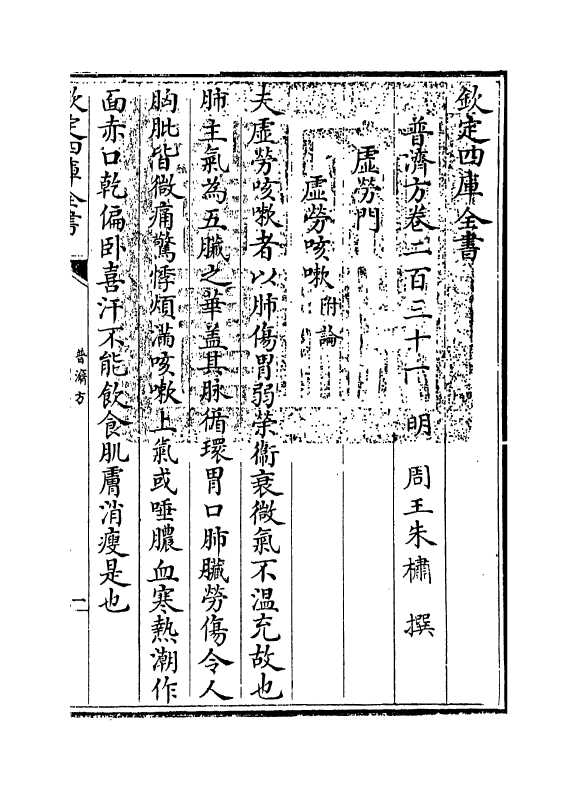 欽定四庫全書
普濟方卷二百三十一 明 周王朱橚 撰
虛勞門
虛勞咳嗽附論
夫虛勞咳嗽者以肺傷胃弱榮衞衰微氣不温充故也
肺主氣為五臟之華盖其脉循環胃口肺臟勞傷令人
胸肶皆微痛驚悸煩滿咳嗽上氣或唾膿血寒熱潮作
面赤口乾偏卧喜汗不能飲食肌膚消瘦是也
欽定四庫全書
普濟方
一